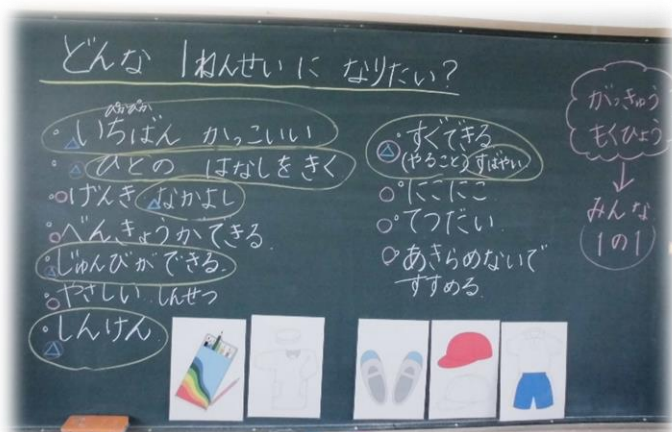 どんな 1ねんせいに なりたい?
ぴかぴか
いちばん かっこいい
ひとの はなしをきく
げんき なかよし
べんきょうができる
じゅんびができる
やさしい しんせつ
しんけん
すぐできる
(やること) すばやい
にこにこ
てつだい
あきらめないで
すすめる
がっきゅう
もくひょう
↓
みんな
1の1